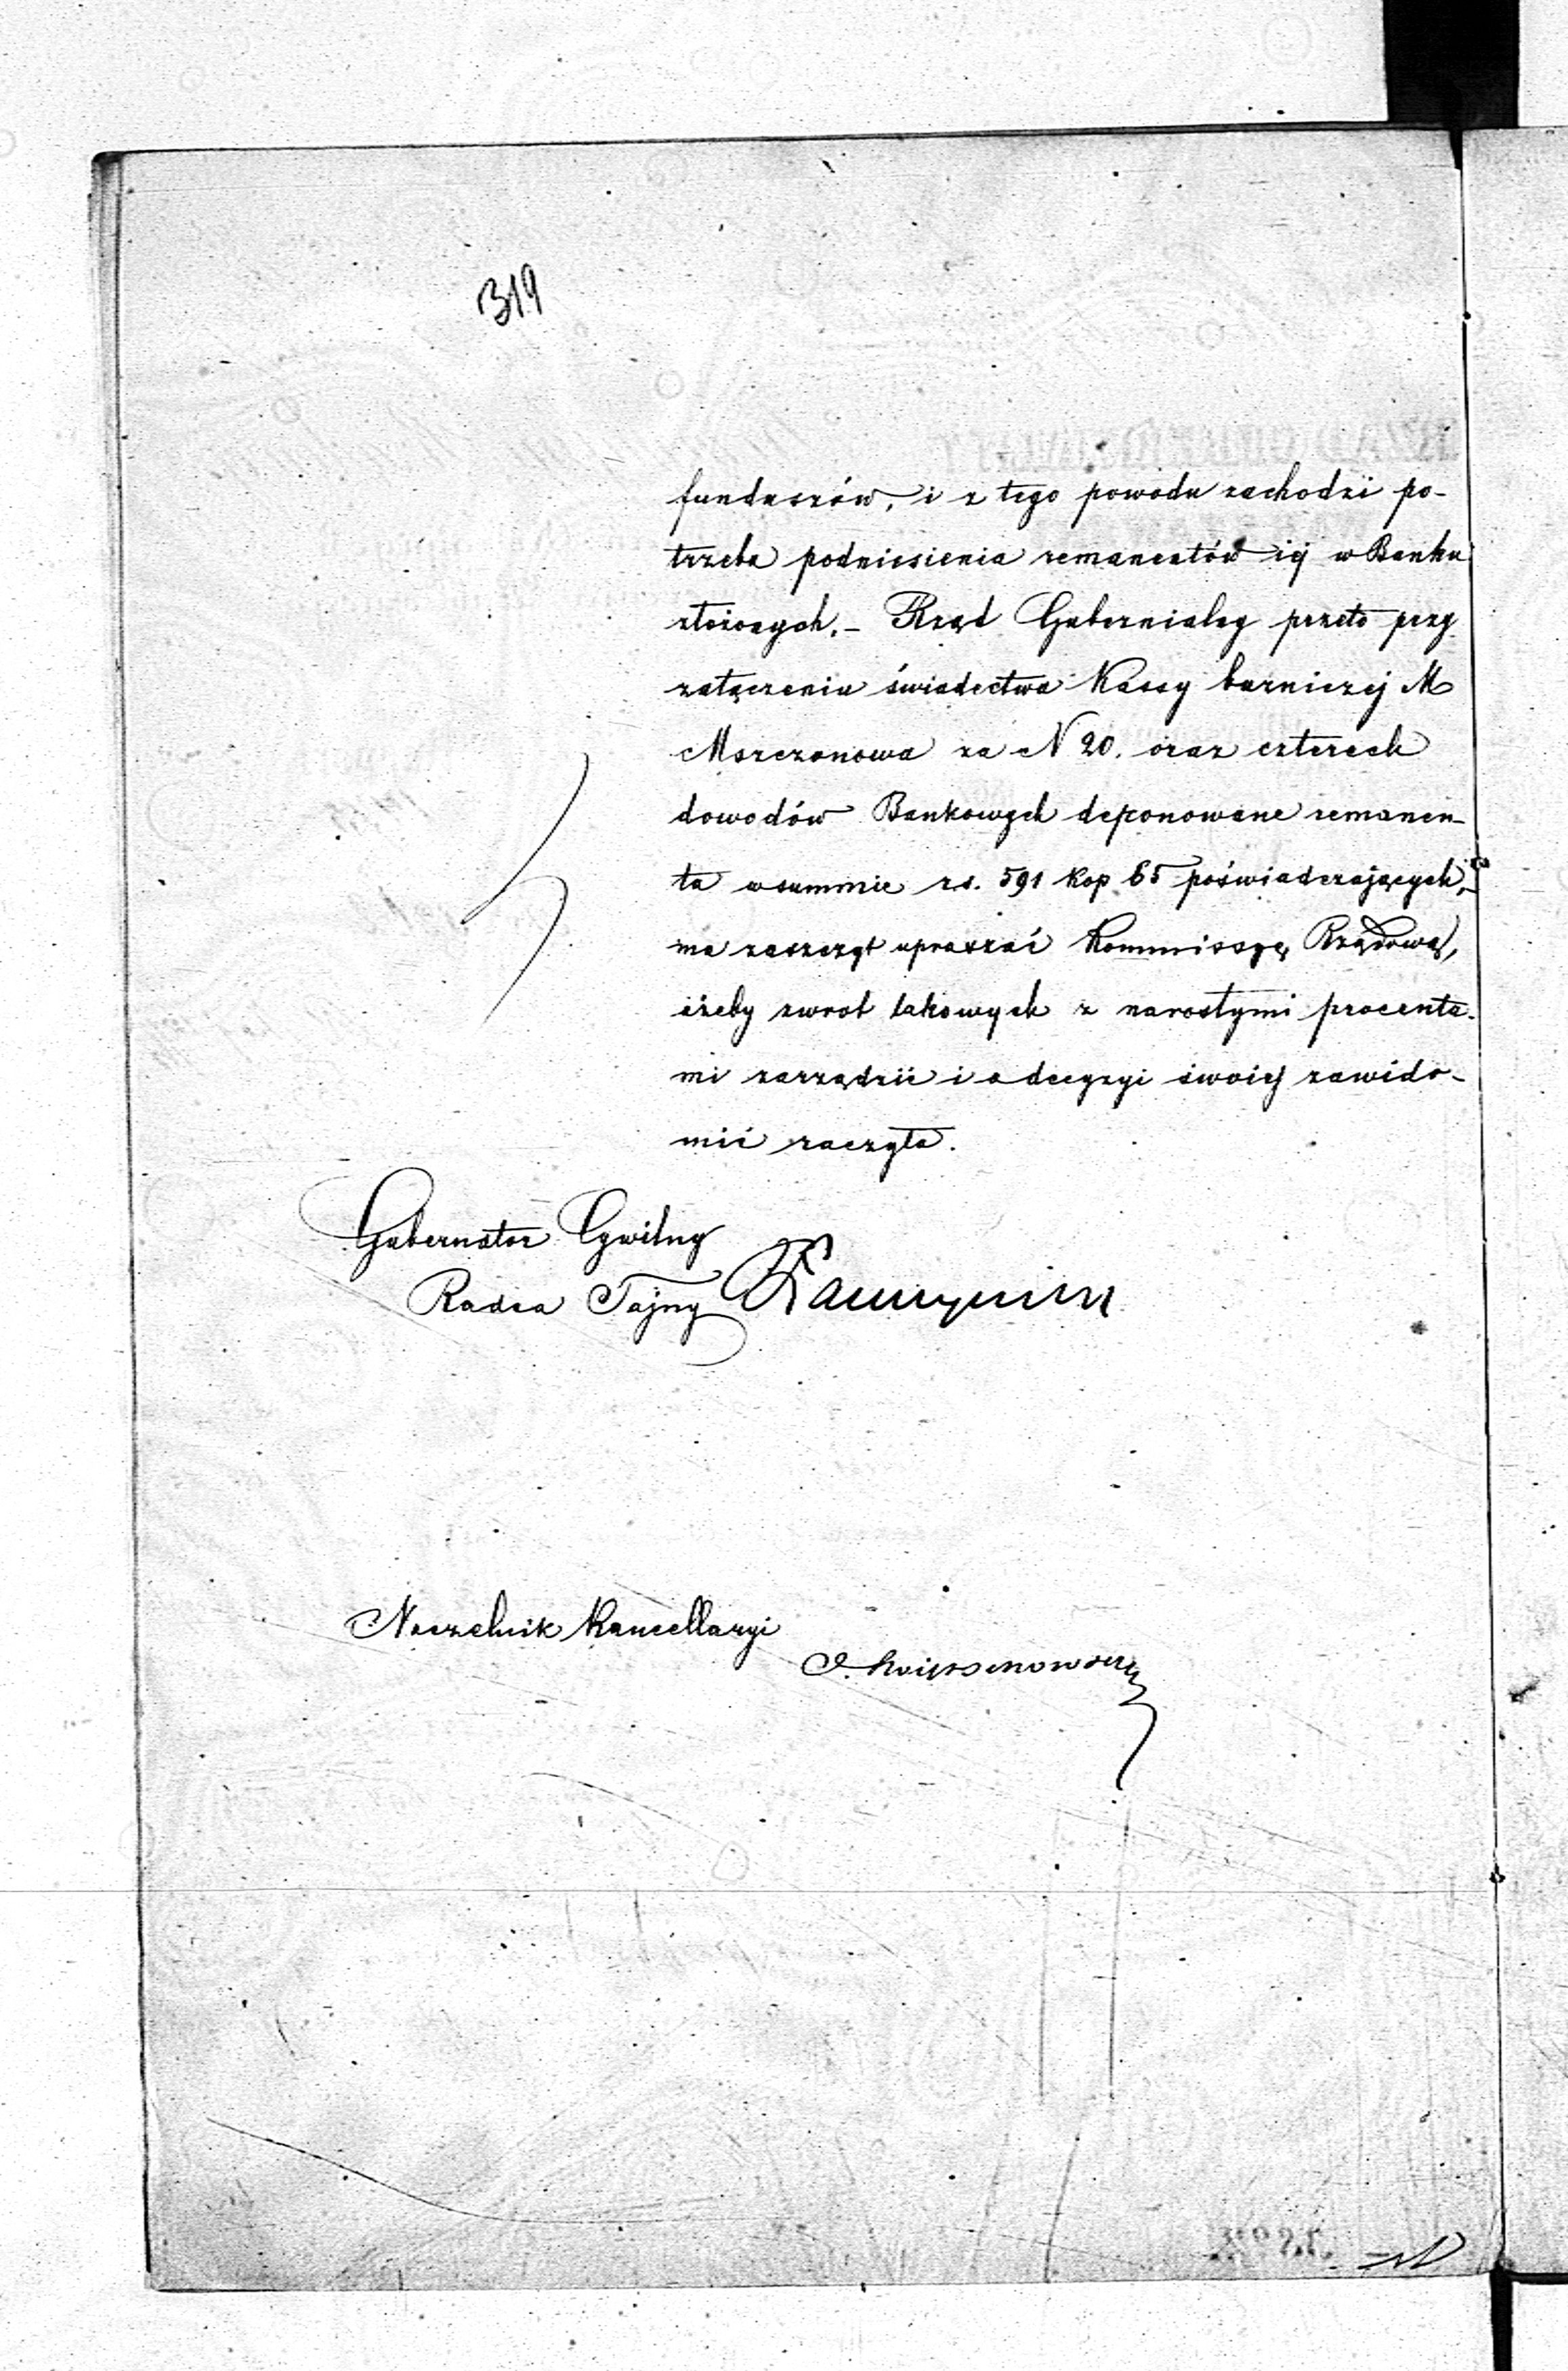 319
funduszów, i z tego powodu zachodzi po-
trzeba podniesienia remanentów iej w Banku
złożonych. – Rząd Gubernialny przeto przy
załączeniu świadectwa Kassy burniczej M
Mszczonowa za N 20. oraz czterech
dowodów Bankowych deponowane remanen-
ta w summie rs. 591 kop 65 poświadczających,
ma zaszczyt upraszać Kommissyę Rządową,
ażeby zwrot takowych z narosłymi procenta-
mi zarządzić i o decyzyi swoiej zawido-
mić raczyła.
Gubernator Cywilny
Radca Tajny
Naczelnik Kancellaryi